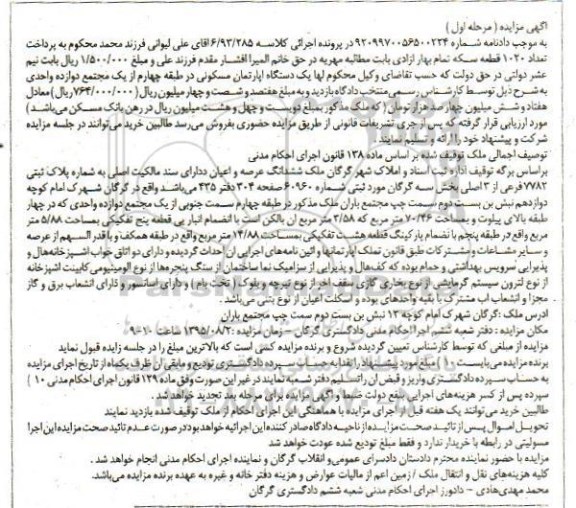 آگهی مزایده ( مرحله اول )
به موجب دادنامه شماره ۹۲۰۹۹۷۰۰۵۶۵۰۰۲۲۴ در پرونده اجرائی کلاسه ۶/۹۳/۲۸۵ اقای علی لیوانی فرزند محمد محکوم به پرداخت
تعداد ۱۰۲۰ قطعه سکه تمام بهار ازادی بابت مطالبه مهریه در حق خانم المیرا افشار مقدم فرزند علی و مبلغ ۱/۵۰۰/۰۰۰ ریال بابت نیم
عشر دولتی در حق دولت که حسب تقاضای وکیل محکوم لها یک دستگاه اپارتمان مسکونی در طبقه چهارم از یک مجتمع دوازده واحدی
به شرح ذیل توسط کارشناس رسمی منتخب دادگاه بازدید و به مبلغ هفتصد و شصت و چهار میلیون ریال (۷۶۴/۰۰۰/۰۰۰ ریال) معادل
هفتاد و شش میلیون چهارصد هزار تومان ( که ملک مذکور بمبلغ دویست و چهل و هشت میلیون ریال در رهن بانک مسکن می‌باشد )
مورد ارزیابی قرار گرفته که پس از اجری تشریفات قانونی از طریق مزایده حضوری بفروش می‌رسد طالبین خرید می‌توانند در جلسه مزایده
شرکت و پیشنهاد خود را ارائه و تسلیم نمایند .
توصیف اجمالی ملک توقیف شده بر اساس ماده ۱۳۸ قانون اجرای احکام مدنی
براساس برگه توقیف اداره ثبت اسناد و املاک شهر گرگان ملک ششدانگ عرصه و اعیان ددارای سند مالکیت اصلی به شماره پلاک ثبتی
۷۷۸۲ فرعی از ۳ اصلی بخش سه گرگان مورد ثبتی شماره ۶۰۹۶۰ صفحه ۳۰۴ دفتر ۴۳۵ می‌باشد واقع در گرگان شهرک امام کوچه
دوازدهم نبش بن بست دوم سمت چپ مجتمع باران ملک مذکور در طبقه چهارم سمت جنوبی از یک مجتمع دوازده واحدی که در چهار
طبقه بالای پیلوت و بمساحت ۷۰/۴۶ متر مربع که ۳/۵۸ متر مربع ان بالکن است با انضمام انباری قطعه پنج تفکیکی بمساحت ۵/۸۸ متر
مربع واقع در طبقه پنجم با نضمام پارکینگ قطعه هشت تفکیکی بمساحت ۱۳/۸۸ متر مربع واقع در طبقه همکف و با قدر السهم از عرصه
و سایر مشاعات و مشترکات طبق قانون تملک اپارتمانها و ائین نامه‌های اجرایی ان احداث گردیده و دارای دو اتاق خواب اشپزخانه هال و
پذیرایی سرویس بهداشتی و حمام بوده که کف هال و پذیرایی از سرامیک نما ساختمان از سنگ پنجره‌ها از نوع الومینیومی کابینت اشپزخانه
از نوع لترون سیستم گرمایشی از نوع بخاری گازی سقف اجر از نوع تیرچه و بلوک ( تخت بام ) و دارای اسانسور و دارای انشعاب برق و گاز
مجزا و انشعاب اب مشترک با بقیه واحدهای بوده و اسکلت اعیان از نوع بتنی می‌باشد .
ادرس ملک : گرگان شهرک امام کوچه ۱۲ نبش بن بست دوم سمت چپ مجتمع باران
مکان مزایده : دفتر شعبه ششم اجرا احکام مدنی دادگستری گرگان – زمان مزایده : ۱۳۹۵/۰۸/۲ ساعت ۱۰-۹
مزایده از مبلغی که توسط کارشناس تعیین گردیده شروع و برنده مزایده کسی است که بالاترین مبلغ را در جلسه زایده قبول نماید
برنده مزایده می‌بایست ۱۰٪ مبلغ مورد پیشنهاد را نقدا به حساب سپرده دادگستری تودیع و مابقی ان ظرف یکماه از تاریخ اجرای مزایده
به حساب سپرده دادگستری واریز و قبض ان را تسلیم دفتر شعبه نمایند در غیر این صورت وفق ماده ۱۲۹ قانون اجرای احکام مدنی ۱۰٪
سپرده پس از کسر هزینه‌های اجرایی بنفع دولت ضبط و اگهی مزایده برای مرحله بعد تجدید خواهد شد .
طالبین خرید می‌توانند یک هفته قبل از اجرای مزایده با هماهنگی این اجرای احکام از ملک توقیف شده بازدید نمایند
تحویل اموال پس از تائید صحت مزایده از ناحیه دادگاه صادر کننده این اجرائیه خواهد بود در صورت عدم تائید صحت مزایده این اجرا
مسولیتی در رابطه با خریدار ندارد و فقط مبلغ تودیع شده عودت خواهد شد
مزایده با حضور نماینده محترم دادستان دادسرای عمومی و انقلاب گرگان و نماینده اجرای احکام مدنی انجام خواهد شد .
کلیه هزینه‌های نقل و انتقال ملک / زمین اعم از مالیات عوارض و هزینه دفتر خانه و غیره به عهده برنده مزایده می‌باشد.
محمد مهدی هادی – دادورز اجرای احکام مدنی شعبه ششم دادگستری گرگان